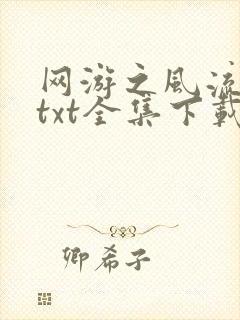 网游之风流
txt全集下载
卿希子